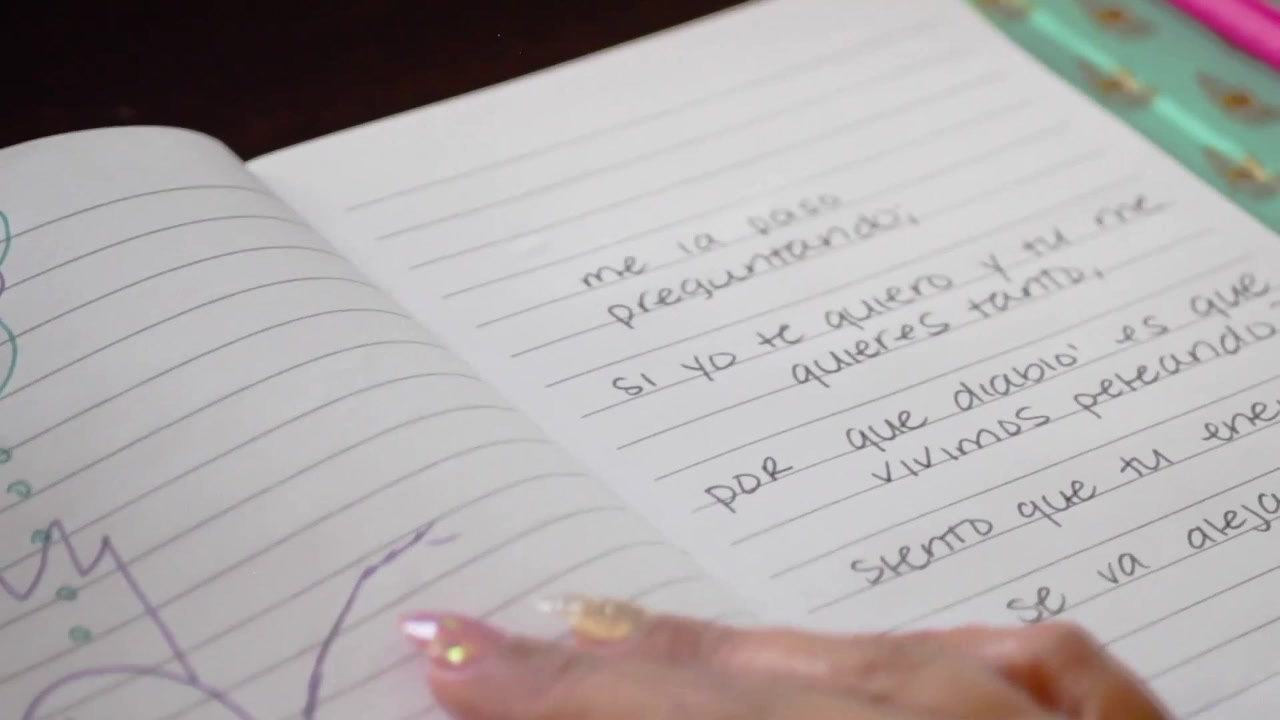 me la paso
preguntando,
si yo te quiero y tu me
quieres tanto,
por que diablo' es que
vivimos peleando
siento que tu
se va